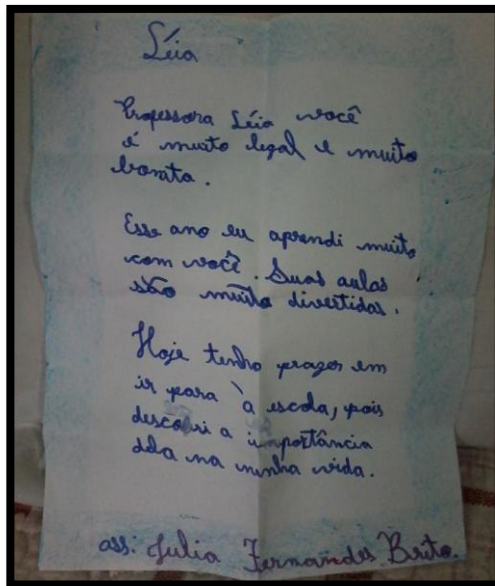 Léia
Professora Léia você
é muito legal e muito
bonita.
Esse ano eu aprendi muito
com você. Suas aulas
são muito divertidas.
Hoje tenho prazer em
ir para à escola, pois
descobri a importância
dela na minha vida.
ass: Julia Fernandes Brito.